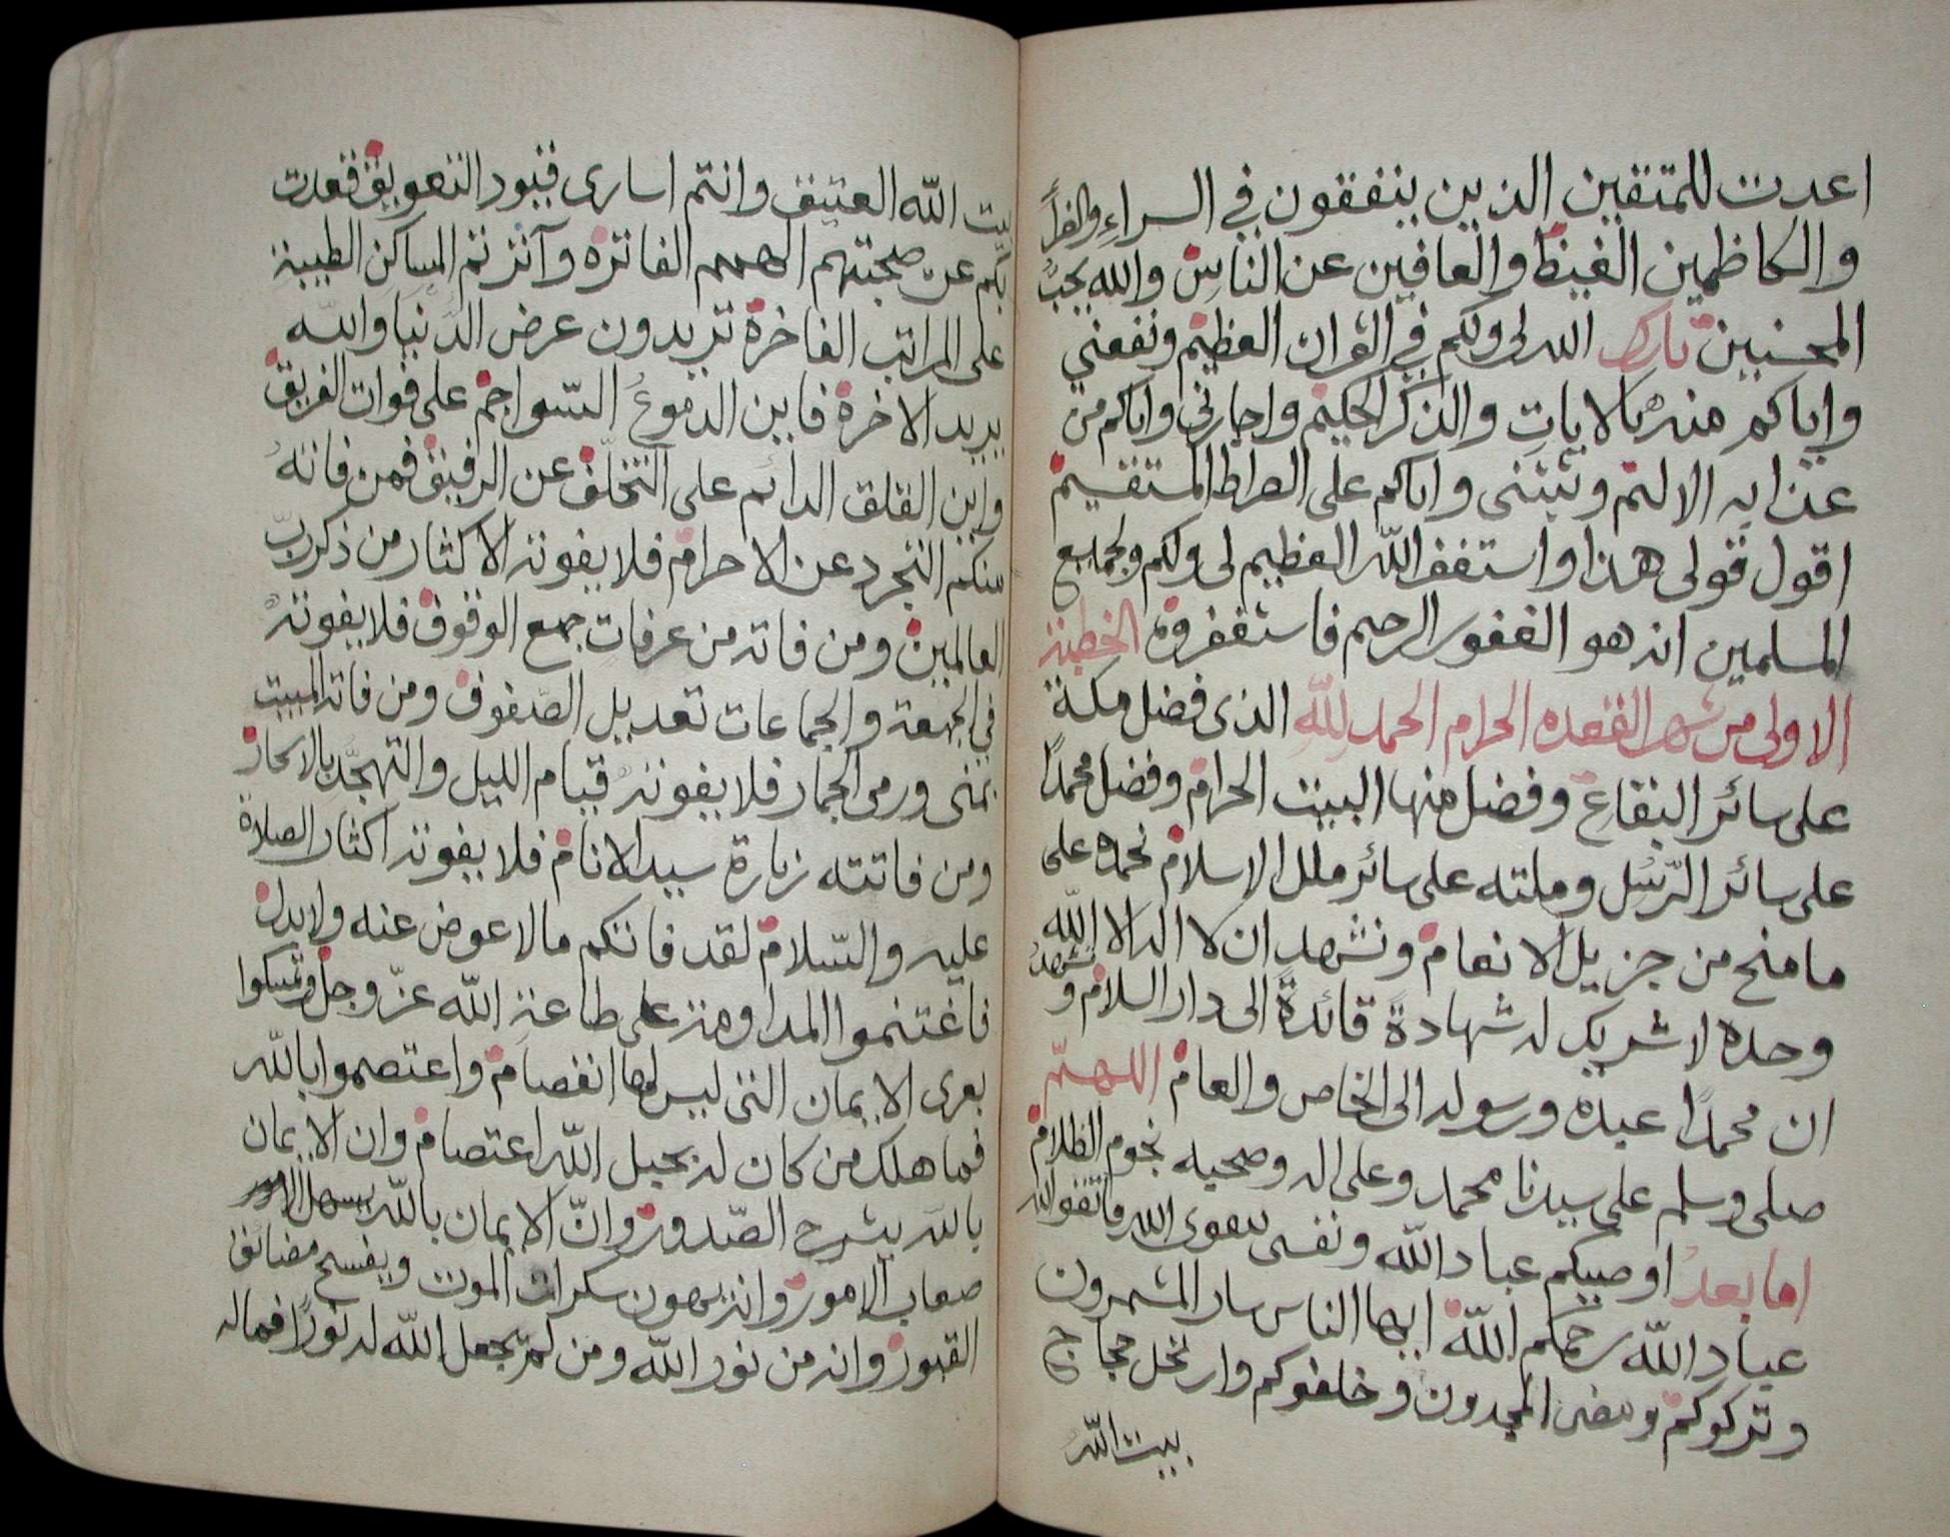 اعدت للمتقين الذين ينفقون في السراء والضراء
والكاظمين الغيظ والعافين عن الناس والله يحب
المحسنين بارك الله لى ولكم في القران العظيم ونفعني
واياكم منه بالايات والذكر الحكيم واجارني واياكم من
عذابه الاليم وثبتنى واياكم على الصراط المستقيم
اقول قولى هذا واستغفر الله العظيم لى ولكم ولجميع
المسلمين انه هو الغفور الرحيم فاستغفروه الخطبة
الاولى من شهر القعده الحرام الحمد لله الذى فضل مكة
على سائر البقاع وفضل منها البيت الحرام وفضل محمدًا
على سائر الرّسُل وملته على سائر ملل الاسلام نحمده على
ما منح من جزيل الانعام ونشهد ان لا اله الا الله
وحده لا شريك له شهادةً قائدةً الى دار السلام ونشهدُ
ان محمدًا عبده ورسوله الى الخاص والعام اللهمّ
صلى وسلم على سيدنا محمد وعلى اله وصحبه نجوم الظلام
اما بعدُ اوصيكم عباد الله ونفسى بتقوى الله فاتقوا الله
عباد الله رحمكم الله ايها الناس سار المشمرون
وتركوكم ومضى المجدون وخلفوكم وارتحل حجاج
بيت اللّه
بيت الله العتيق وانتم اسارى قيود التعويق قعدت
بكم عن صحبتهم الهمم الفاتره وآثرتم المساكن الطيبة
على المراتب الفاخرة تريدون عرض الدّنيا والله
يريد الاخرة فاين الدموعُ السّواجم على فوات الفريق
واين القلق الدائم على التخلّف عن الرفيق فمن فاته
منكم التجرد عن الاحرام فلا يفوته الاكثار من ذكر ربّ
العالمين ومن فاته من عرفات جمع الوقوف فلا يفوته
في الجمعة والجماعات تعديل الصّفوف ومن فاته المبيت
بمنى ورمى الجمار فلا يفوته قيام الليل والتهجّد بالاسحار
ومن فاتته زيارة سيد الانام فلا يفوته اكثار الصلاة
عليه والسّلام لقد فاتكم مالا عوض عنه ولا بدل
فاغتنموا المداومة على طاعة الله عزّ وجل وتمسكوا
بعرى الايمان التى ليس لها انفصام واعتصموا بالله
فما هلك من كان له بحبل الله اعتصام وان الايمان
بالله يشرح الصّدور وانّ الايمان بالله يسهل الامور
صعاب الامور وانه يهون سكرات الموت ويفسح مضائق
القبور وانه من نور الله ومن لم يجعل الله له نورًا فماله